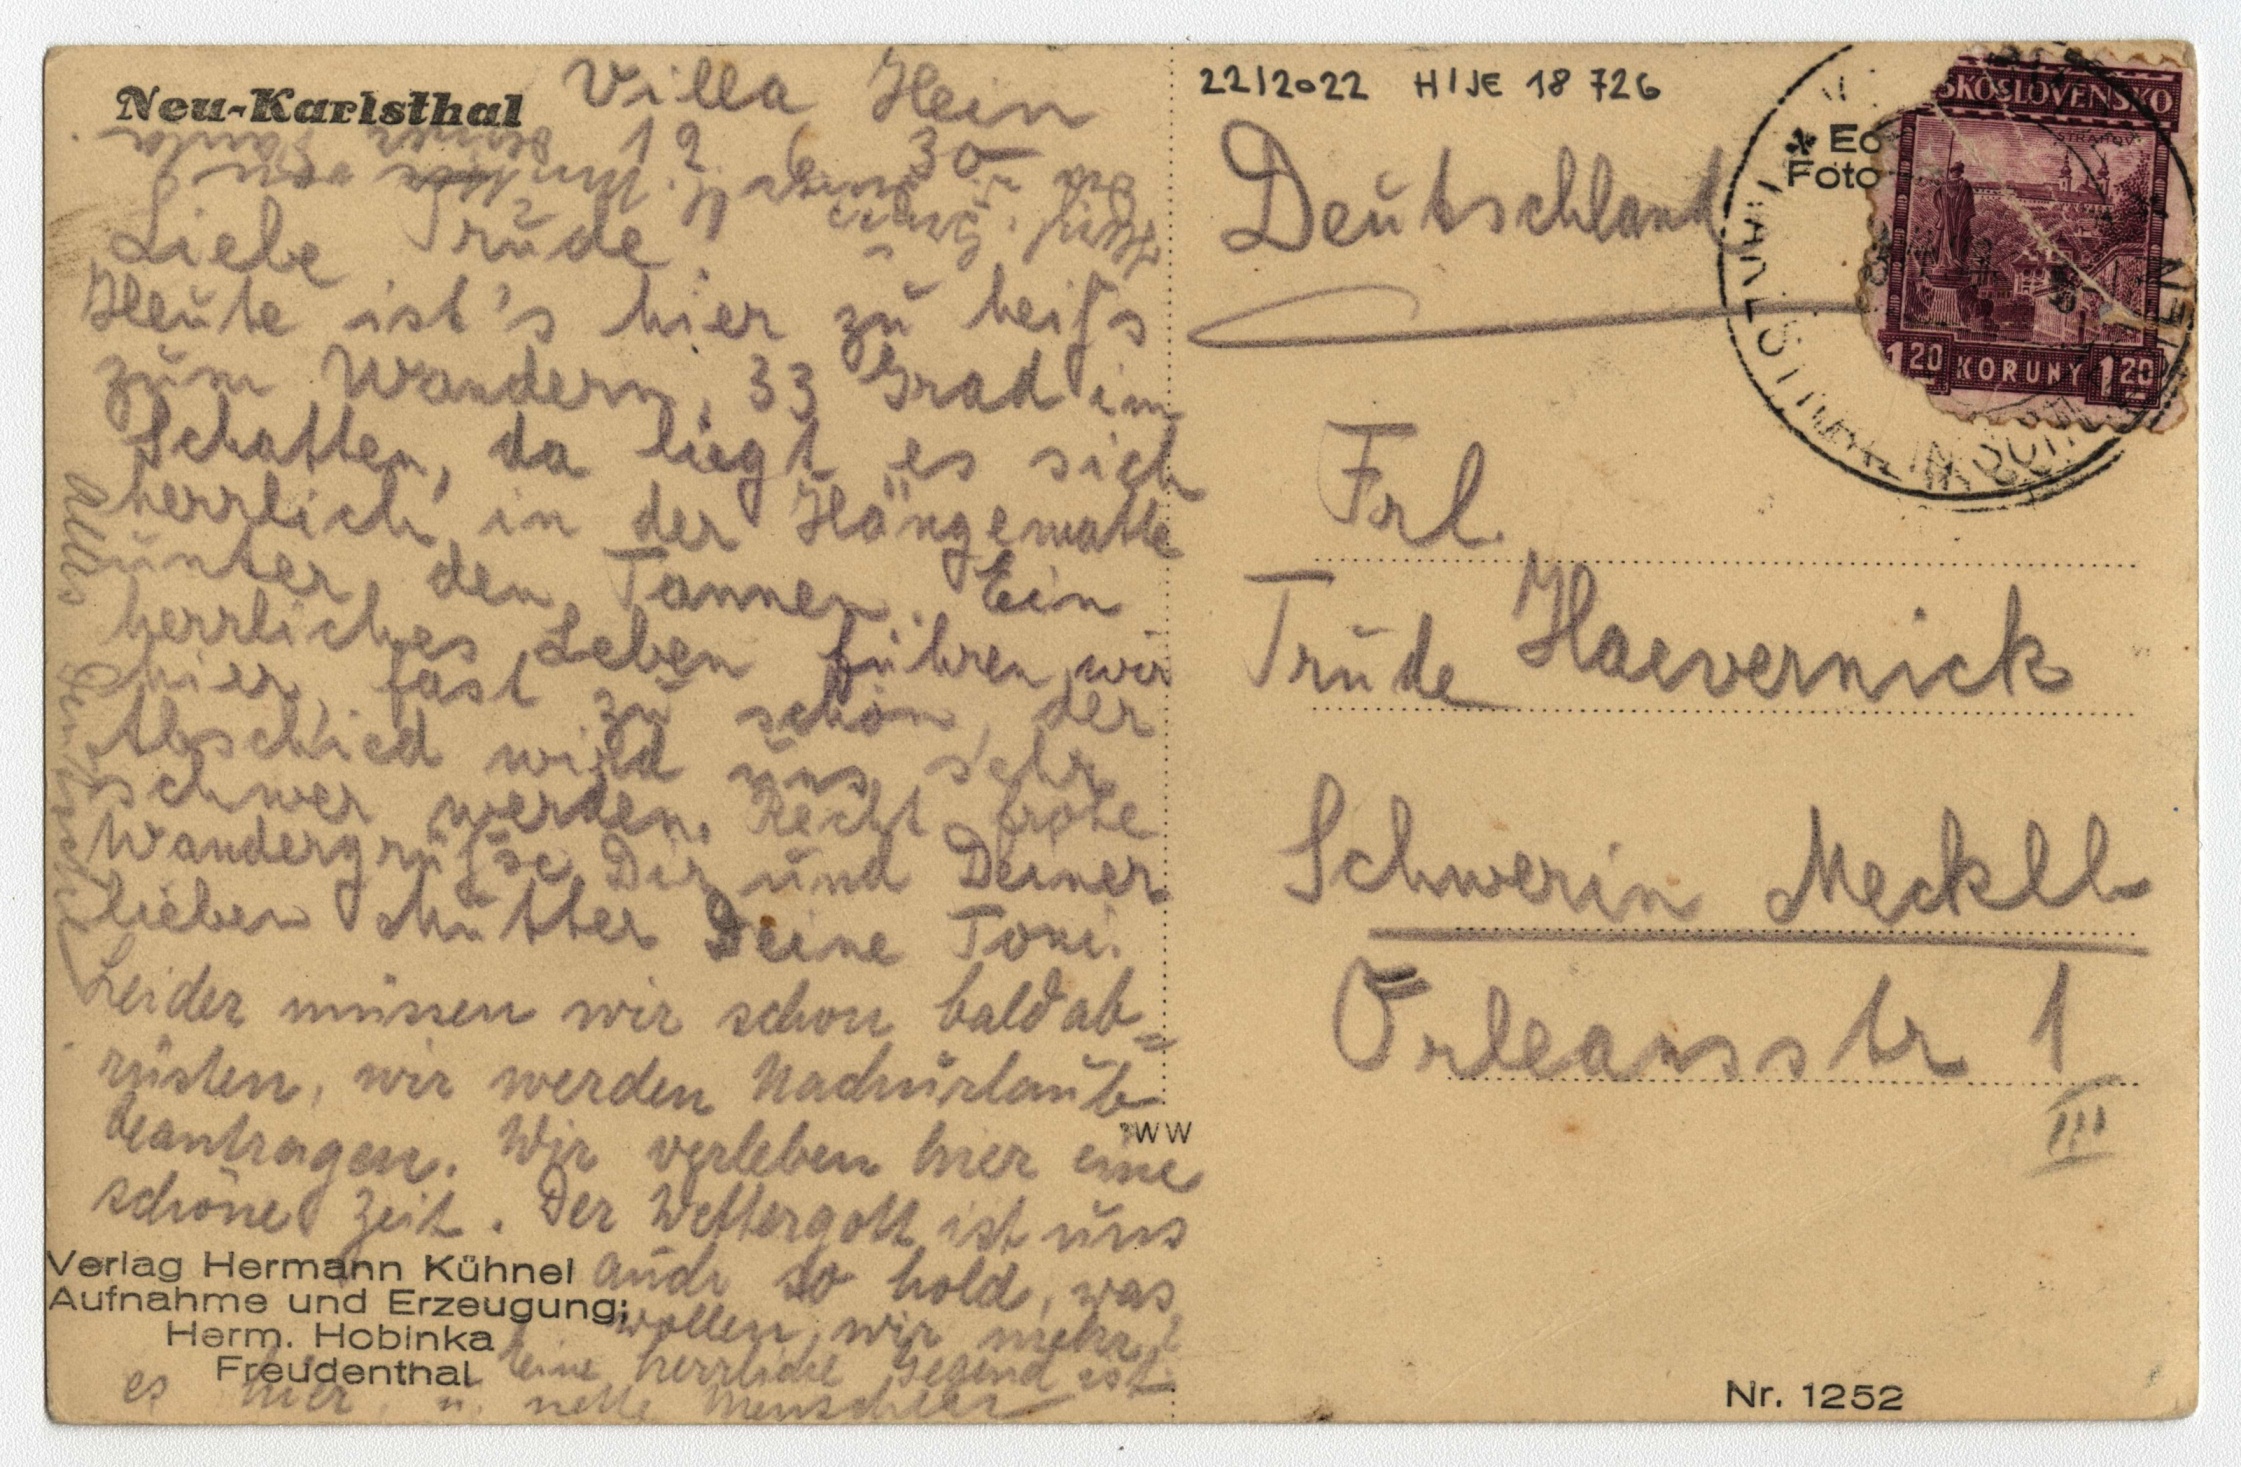 Neu-Karlsthal
Villa Hein
12 6 30
Liebe Trude
Heute ist's hier zu heiss
zum Wandern, 33 Grad im
Schatten, da liegt es sich
herrlich in der Hängematte
unter den Tannen. Ein
herrliches Leben führen wir
hier, fast zu schön, der
Abschied wird uns sehr
schwer werden. Recht frohe
Wandergrüsse Dir und Deiner
lieben Mutter Deine Toni.
Leider müssen wir schon bald ab=
rüsten, wir werden Nachurlaub
beantragen. Wir verleben hier eine
schöne Zeit. Der Wettergott ist uns
auch so hold, was
wollen wir mehr!
Eine herrliche Gegend ist
es hier u. nette Menschen
alles
Verlag Hermann Kühnel
Aufnahme und Erzeugung:
Herm. Hobinka
Freudenthal
WW
22/2022 H/JE 18 726
Deutschland
Foto
SKOSLOVENSKO
1 20 KORUNY 1 20
Frl.
Trude Haevernick
Schwerin Meckll
Orleansstr 1
III
Nr. 1252